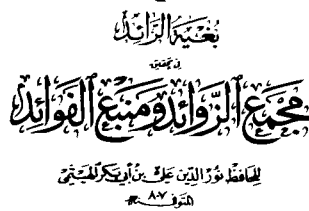 بُغْيَةُ الرَّائِد
في تحقيق
مَجْمَعِ الزَّوَائِدِ وَمَنْبَعِ الفَوَائِد
لِلحَافِظِ نُورُ الدِّين عَلِيّ بْن أَبِي بَكر الهَيْثَمِيّ
المتوفى سنة ٨٠٧